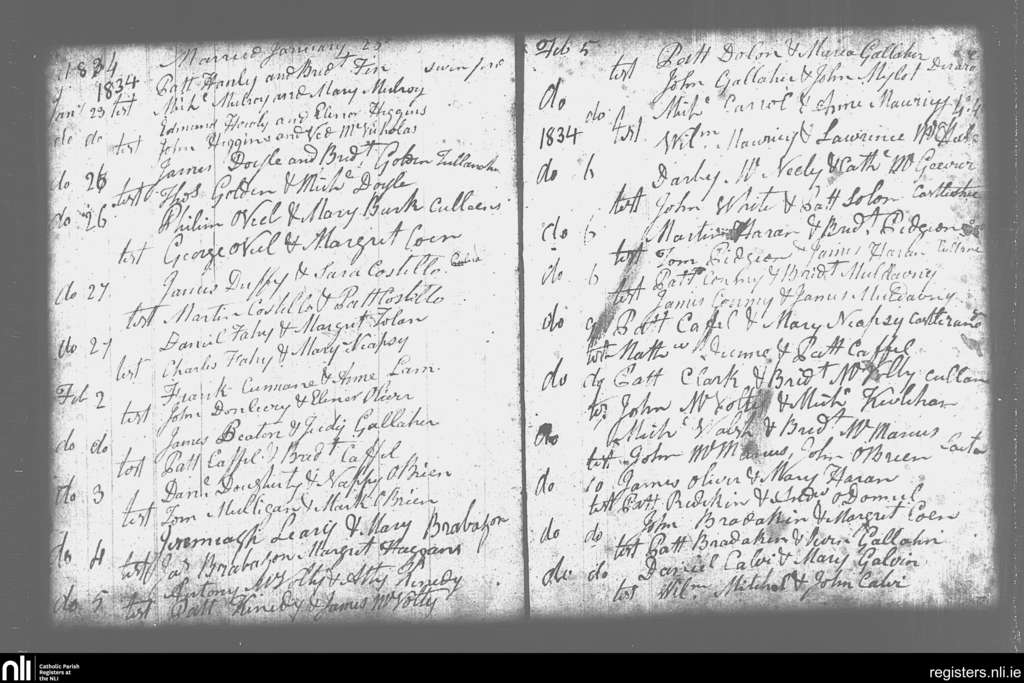 1834 Married January 23
1834 Patt Hanly and Bridt Fin
Jany 23 test Michl Mulroy and Mary Mulroy
do do Edmund Healy and Elinor Higgins
test John Higgins and Ned McNicholas
do 26 James Doyle and Bridt Golden
test Thos Golden & Michl Doyle
do 26 Philim ONeel & Mary Burk Culleens
test George ONeil & Margret Coen
do 27 James Duffy & Sara Costillo
test Martin Costillo & Patt Costillo
do 27 Daniel Fahy & Margret Folan
test Charles Fahy & Mary Neapsy
Feb 2 Frank Cunnane & Anne Lam
test John Donlevy & Elinor Oliver
do do James Beaton & Judy Gallaher
test Patt Caffel & Bridt Caffel
do 3 Danl Dougherty & Nappy OBrien
test Tom Mulligan & Mark OBrien
do 4 Jeremiagh Leary & Mary Brabazon
test Jas Brabazon Margret Haggans
do 5 Antony McVolty & Atty Kinedy
test Patt Kinedy & James McVolty
Feb 5 Patt Dolon & Maria Gallaher
test John Gallaher & John Mylot
do do Michl Carrol & Anne Mauricy
1834 test Wilm Mauricy & Lawrince
do 6 Darby McNeely & Cathe
test John White & Patt Solon
do 6 Martin Haran & Bridt Pidgeon
test Tom Pidgeon James Haran
do 6 Patt Conmy & Bridt Muldavny
test James Conmy & James Muldavny
do 9 Patt Caffel & Mary Neapsy
test Natthw Dunne & Patt Caffel
do 9 Patt Clark & Bridt Cullan
test John McVolty & Michl
do Michl Walsh & Bridt McManus
test John McManus, John OBrien
do 10 James Oliver & Mary Haran
test Patt Rudikin & ODoniel
do do John Bradakin & Margret Coen
test Patt Bradakin & Gallahn
do do Daniel Calvi & Mary Galvin
test Wilm Mitchel & John Calvi
nli
Catholic Parish
Registers at
the NLI
registers.nli.ie